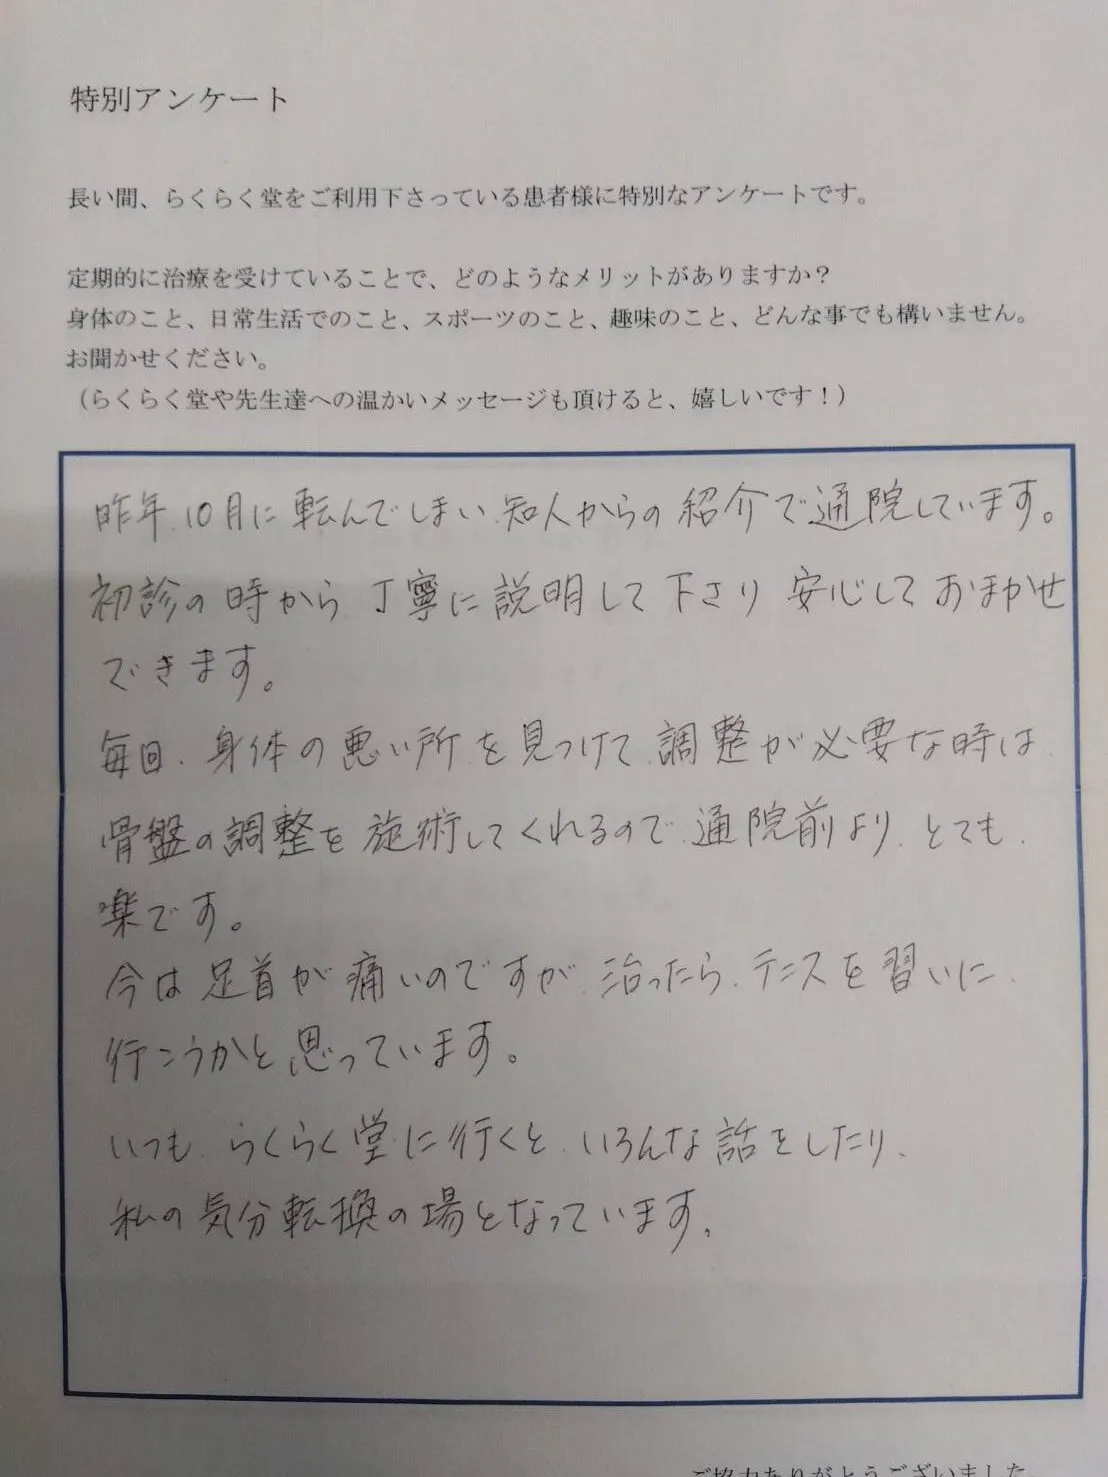 特別アンケート
長い間、らくらく堂をご利用下さっている患者様に特別なアンケートです。
定期的に治療を受けていることで、どのようなメリットがありますか？
身体のこと、日常生活でのこと、スポーツのこと、趣味のこと、どんな事でも構いません。
お聞かせください。
（らくらく堂や先生達への温かいメッセージも頂けると、嬉しいです！）
昨年、10月に転んでしまい、知人からの紹介で通院しています。
初診の時から、丁寧に説明して下さり 安心しておまかせ
できます。
毎回、身体の悪い所を見つけて、調整が必要な時は、
骨盤の調整を施術してくれるので、通院前より、とても、
楽です。
今は足首が痛いのですが、治ったら、テニスを習いに、
行こうかと思っています。
いつも、らくらく堂に行くと、いろんな話をしたり、
私の気分転換の場となっています。
ご協力ありがとうございました